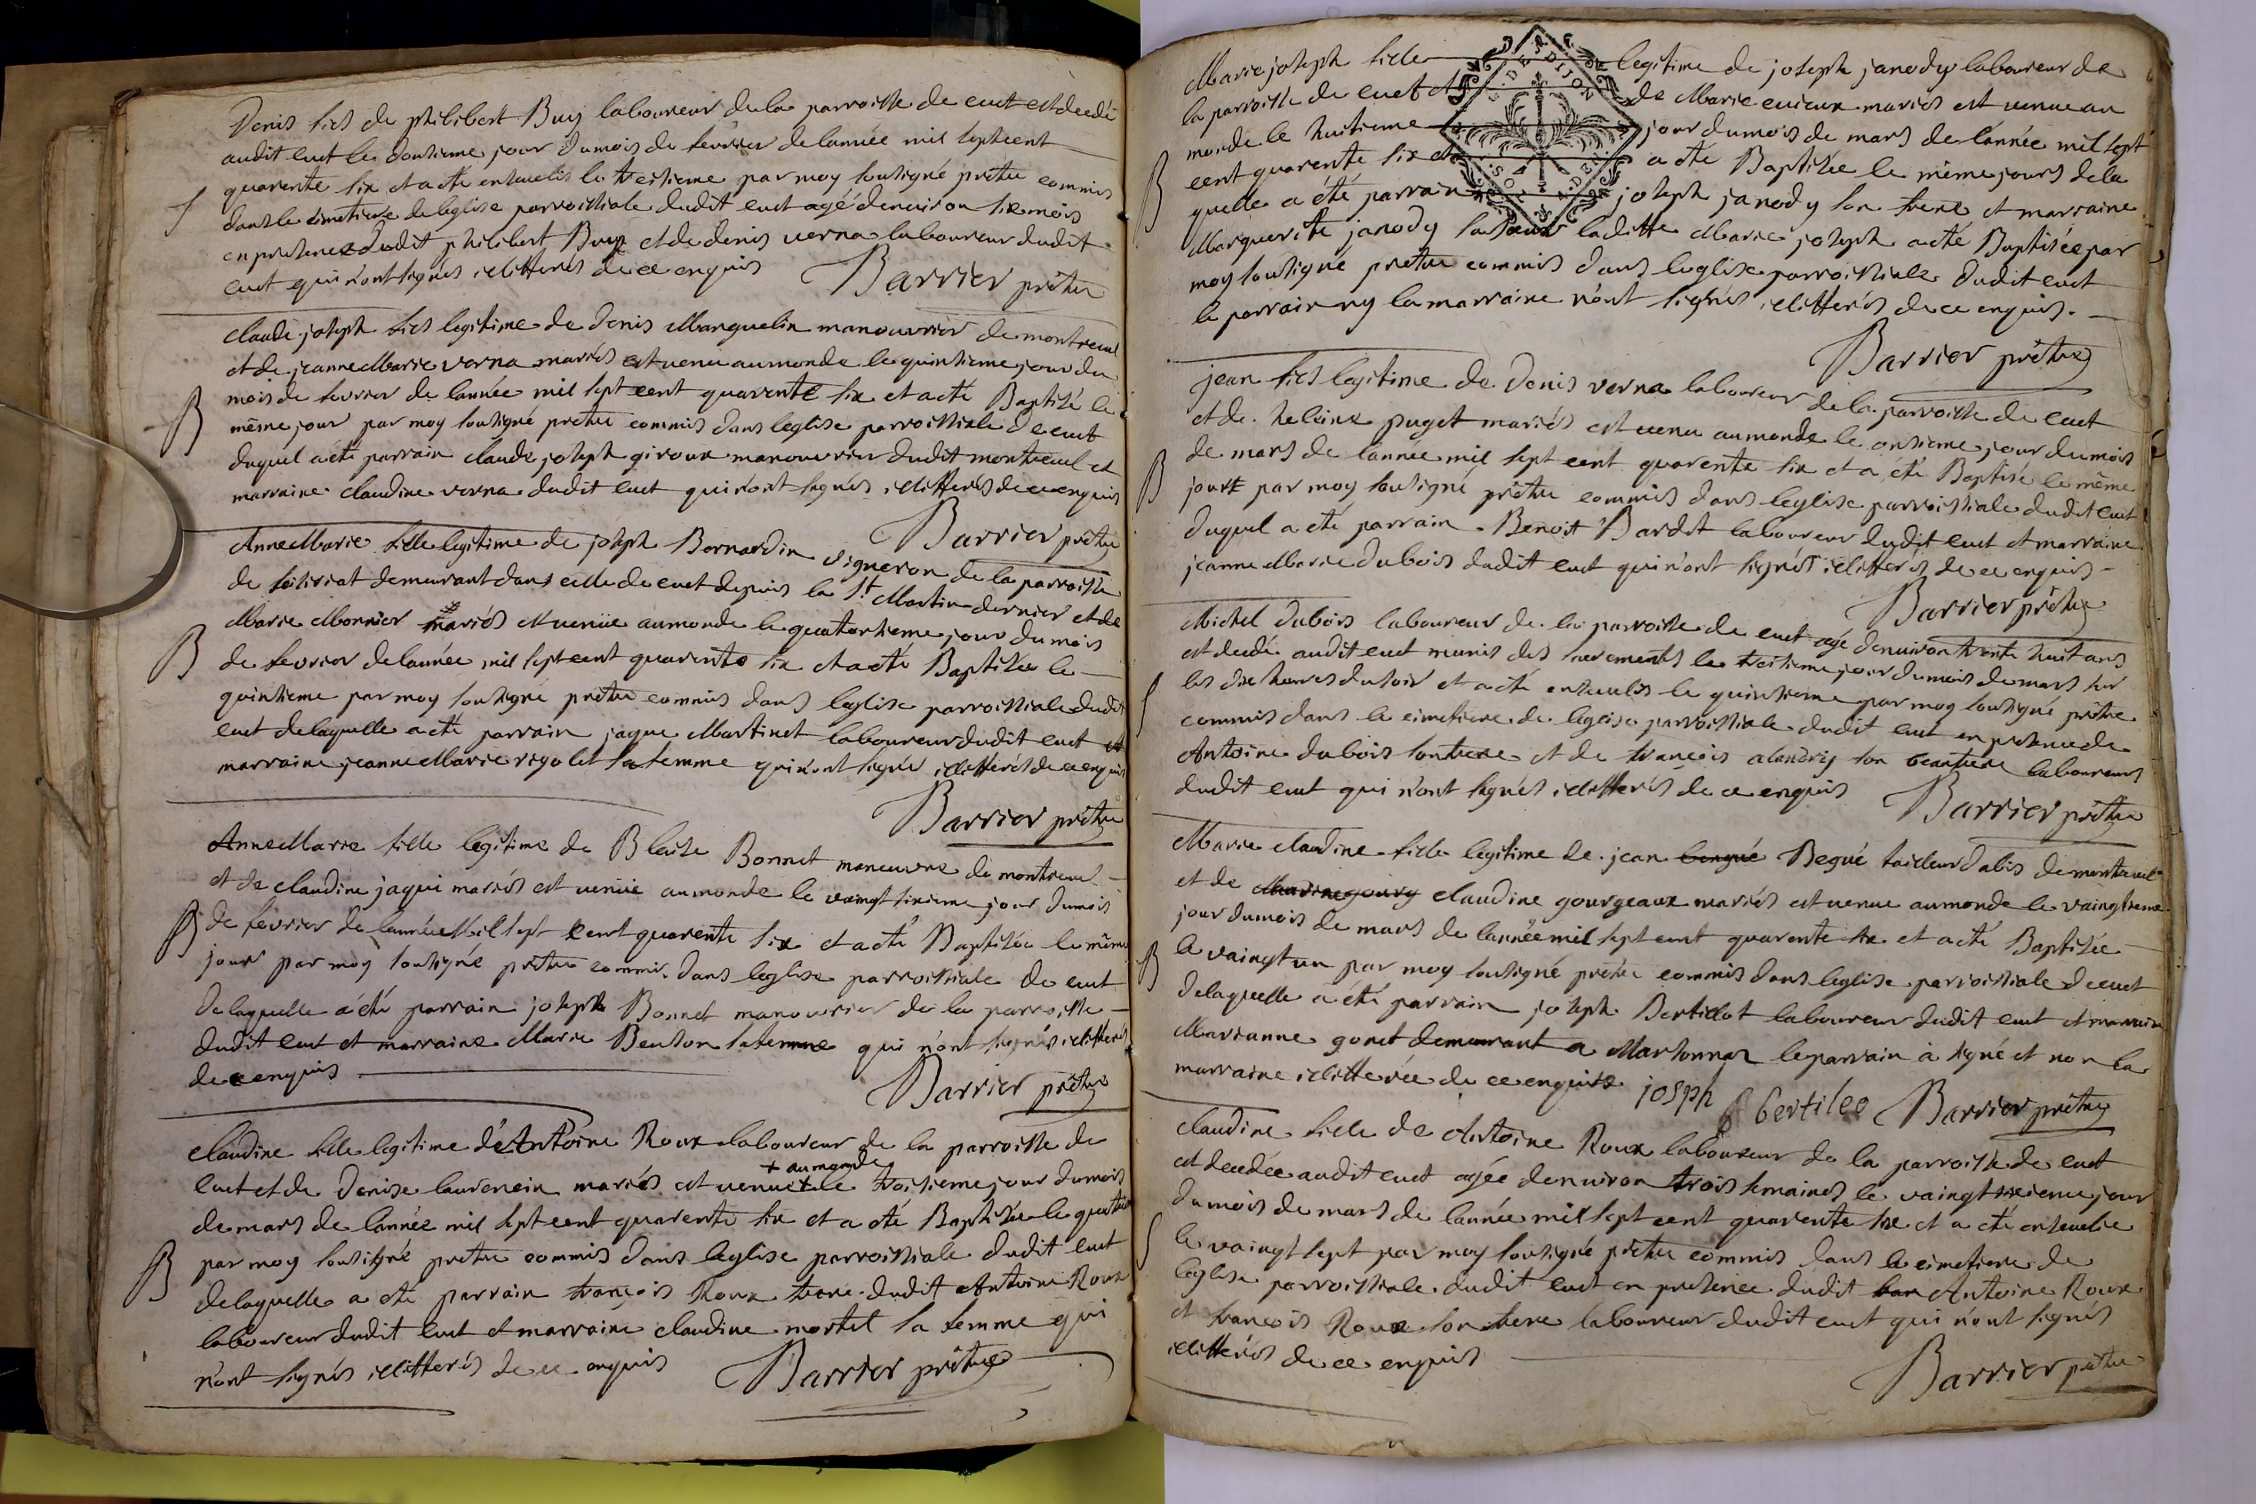 Denis fils de philibert Buy laboureur de la parroisse de cuet est decedé
audit cuet le douzieme jour du mois de fevrier de lannée mil septcent
quarente six et a eté enseuelis le treisieme par moy soussigné prêtre commis
S dans le cimetiere de leglise parroissiale dudit cuet agé denuiron six mois
en presence dudit philibert Buy et de denis verna laboureur dudit
cuet qui n'ont signés illitterés de ce enquis Barrier prêtre
claude joseph fils legitime de Denis Manguelin manouvrier de montreual
et de jeanne Marie verna mariés est uenu au monde le quinsieme jour du
mois de fevrier de lannée mil sept cent quarente six et a eté Baptisé le
B même jour par moy soussigné prêtre commis dans leglise parroissiale de cuet
duquel a eté parrain claude joseph giroux manouvrier dudit montreual et
marraine claudine verna dudit cuet qui n'ont signés illitterés de ce enquis
Barrier prêtre
Anne Marie fille legitime de joseph Bernardin vigneron de la parroisse
de demeurant dans celle de cuet depuis la St Martin dernier et de
Marie Monnier mariés est uenüe au monde le quatorsieme jour du mois
B de fevrier de lannée mil sept cent quarente six et a eté Baptisée le
quinsieme par moy soussigné prêtre commis dans leglise parroissiale dudit
cuet de laquelle a eté parrain jaque Martinet laboureur dudit cuet et
marraine jeanne Marie rigolet sa femme qui n'ont signés illitterés de ce enquis
Barrier prêtre
Anne Marie fille legitime de Blaise Bonnet maneuvre de montreual
et de claudine jaqui mariés est uenüe au monde le vaingt sixieme jour du mois
B de février de lannée Mil sept cent quarente six et a eté Baptisée le même
jour par moy soussigné prêtre commis dans leglise parroissiale de cuet
de laquelle a été parrain joseph Bonnet manouvrier de la parroisse
dudit cuet et marraine Marie Beuson sa femme qui n'ont signés illitterés
de ce enquis Barrier prêtre
claudine fille legitime d'Antoine Roux laboureur de la parroisse de
+ au monde
cuet et de Denise laurencin mariés est uenue + le troisieme jour du mois
de mars de lannée mil sept cent quarente six et a eté Baptisée le quatrieme
B par moy soussigné prêtre commis dans leglise parroissiale dudit cuet
de laquelle a eté parrain françois Roux frere dudit Antoine Roux
laboureur dudit cuet et marraine claudine mortel sa femme qui
n'ont signés illitterés de ce enquis Barrier prêtre
Marie joseph fille legitime de joseph janody laboureur de
la parroisse de cuet et de Marie cuicux mariés est uenue au
monde le huitieme jour du mois de mars de lannée mil sept
B cent quarente six et a eté Baptisée le même jours de la
quelle a été parrain joseph janody son frere et marraine
Marguerite janody sa soeur laditte Marie joseph a eté Baptisée par
moy soussigné prêtre commis dans leglise parroissiale dudit cuet
le parrain ny la marraine n'ont signés illitterés de ce enquis.
G. DE DIJON
SOLS DEU
Barrier prêtre
jean fils legitime de Denis verna laboureur de la parroisse de cuet
et de heleine puget mariés est uenu au monde le onsieme jour du mois
de mars de lannée mil sept cent quarente six et a été Baptisé le même
B jour par moy soussigné prêtre commis dans leglise parroissiale dudit cuet
duquel a eté parrain Benoit Bardet laboureur dudit cuet et marraine
jeanne Marie dubois dudit cuet qui n'ont signés illitterés de ce enquis
Barrier prêtre
Michel dubois laboureur de la parroisse de cuet agé denuiron trente huit ans
est decedé audit cuet munis des sacrements le treisieme jour du mois de mars sur
les dix heures du soir et a eté enseuelis le quinsieme par moy soussigné prêtre
S commis dans le cimetiere de leglise parroissiale dudit cuet en presence de
Antoine dubois son frere et de françois alandry son beaufrere laboureurs
dudit cuet qui n'ont signés illitterés de ce enquis Barrier prêtre
Marie claudine fille legitime de jean Begué tailleur d'abis de montreual
et de claudine gourgeaux mariés est uenue au monde le vaingtieme
jour du mois de mars de lannée mil sept cent quarente six et a eté Baptisée
B le vaingt un par moy soussigné prêtre commis dans leglise parroissiale de cuet
de laquelle a été parrain joseph Bertillot laboureur dudit cuet et marraine
Marianne goret demeurant a Marsonnaz le parrain à signé et non la
marraine illitterée de ce enquise josph bertileo Barrier prêtre
claudine fille de Antoine Roux laboureur de la parroisse de cuet
est decedée audit cuet agée denuiron trois semaines le vaingt sixieme jour
du mois de mars de lannée mil sept cent quarente six et a eté enseuelie
S le vaingt sept par moy soussigné prêtre commis dans le cimetiere de
leglise parroissiale dudit cuet en presence dudit Antoine Roux
et françois Roux son frere laboureur dudit cuet qui n'ont signés
illitterés de ce enquis
Barrier prêtre